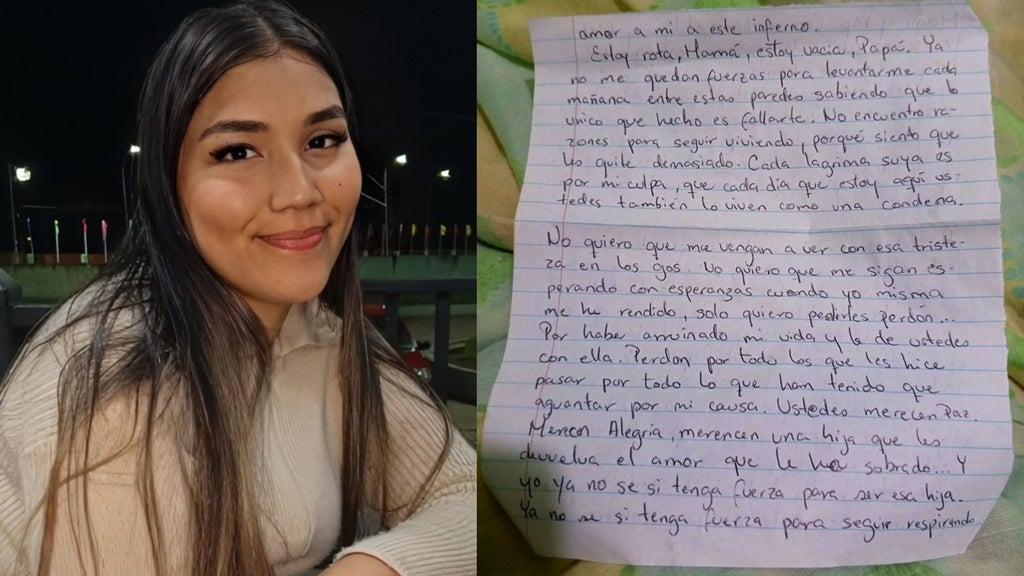 amor a mi a este inferno.
Estoy rota, Mamá, estoy vacia, Papá. Ya
no me quedan fuerzas para levantarme cada
mañana entre estas paredes sabiendo que lo
unico que hecho es fallarte. No encuentro ra-
zones para seguir viviendo, porqué siento que
les quite demasiado. Cada lagrima suya es
por mi culpa, que cada dia que estoy aqui us-
tedes también lo viven como una condena.
No quiero que me vengan a ver con esa triste-
za en los ojos. No quiero que me sigan es-
perando con esperanzas cuando yo misma
me he rendido, solo quiero pedirles perdon...
Por haber arruinado mi vida y la de ustedes
con ella. Perdon, por todo los que les hice
pasar por todo lo que han tenido que
aguantar por mi causa. Ustedes merecen Paz.
Merecen Alegria, merencen una hija que les
devuelva el amor que le ha sobrado... Y
yo ya no se si tenga fuerza para ser esa hija.
Ya no se si tenga fuerza para seguir respirando